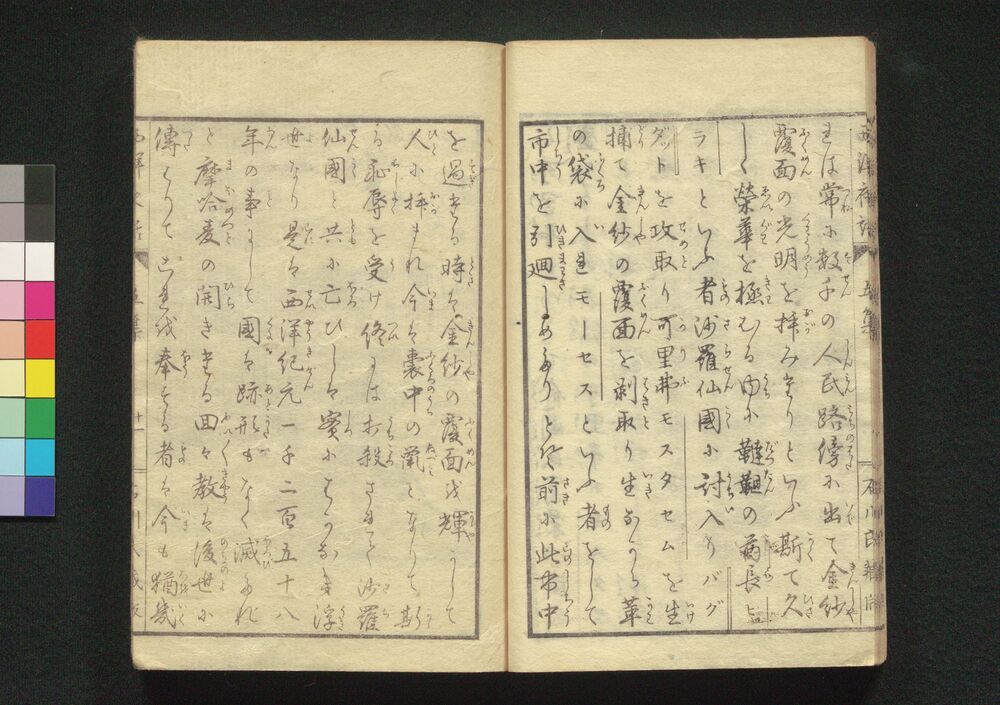 きは常に数千の人民路傍に出て金紗
覆面の光明を拝みたりといふ斯て久
しく榮華を極むる内に韃靼の酋長
ラキといふ者沙羅仙國に討入りバグ
ダットを攻取り可里弗モスタセムを生
捕て金紗の覆面を剥取り生ながら革
の袋に入れモーセスといふ者をして
市中を引廻しめたりとぞ前に此市中
を過たる時は金紗の覆面を輝かして
人に拝まれ今は嚢中の鼠となりて斯
る恥辱を受け終には打殺されて沙羅
仙國と共に亡びしは實にはかなき浮
世なり是は西洋紀元一千二百五十八
年の事にして國は跡形もなく滅たれ
ど摩哈麦の開きたる回々教は後世に
傳はりてこれを奉ずる者は今も猶幾